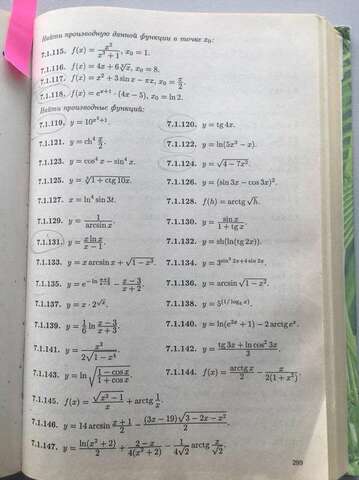 Найти производную данной функции в точке x₀:
7.1.115. f(x) = x²/(x³+1), x₀ = 1.
7.1.116. f(x) = 4x + 6∛x, x₀ = 8.
7.1.117. f(x) = x² + 3 sin x − πx, x₀ = π/2.
7.1.118. f(x) = eˣ⁺¹ · (4x − 5), x₀ = ln 2.
Найти производные функций:
7.1.119. y = 10^(x²+1). 7.1.120. y = tg 4x.
7.1.121. y = ch⁴ x/2. 7.1.122. y = ln(5x³ − x).
7.1.123. y = cos⁴ x − sin⁴ x. 7.1.124. y = √(4 − 7x²).
7.1.125. y = ∛(1 + ctg 10x). 7.1.126. y = (sin 3x − cos 3x)².
7.1.127. x = ln⁴ sin 3t. 7.1.128. f(h) = arctg √h.
7.1.129. y = 1/arcsin x. 7.1.130. y = sin x/(1 + tg x).
7.1.131. y = x ln x/(x − 1). 7.1.132. y = sh(ln(tg 2x)).
7.1.133. y = x arcsin x + √(1 − x²). 7.1.134. y = 3^(sin² 2x+4 sin 2x).
7.1.135. − (x − 3)/(x + 2). 7.1.136. y = arcsin √(1 − x²).
7.1.137. y = x · 2^(√x). 7.1.138. y = 5^(1/log₅ x).
7.1.139. y = 1/6 ln (x − 3)/(x + 3). 7.1.140. y = ln(e²ˣ + 1) − 2 arctg eˣ.
7.1.141. y = x²/(2√(1 − x⁴)). 7.1.142. y = (tg 3x + ln cos² 3x)/3.
7.1.143. y = ln √((1 − cos x)/(1 + cos x)). 7.1.144. f(x) = arctg x/2 − x/(2(1 + x²)).
7.1.145. f(x) = √(x² − 1)/x + arctg 1/x.
7.1.146. y = 14 arcsin (x + 1)/2 − (3x − 19)√(3 − 2x − x²)/2.
7.1.147. y = ln(x² + 2)/2 + (2 − x)/(4(x² + 2)) − 1/(4√2) arctg x/√2.
299